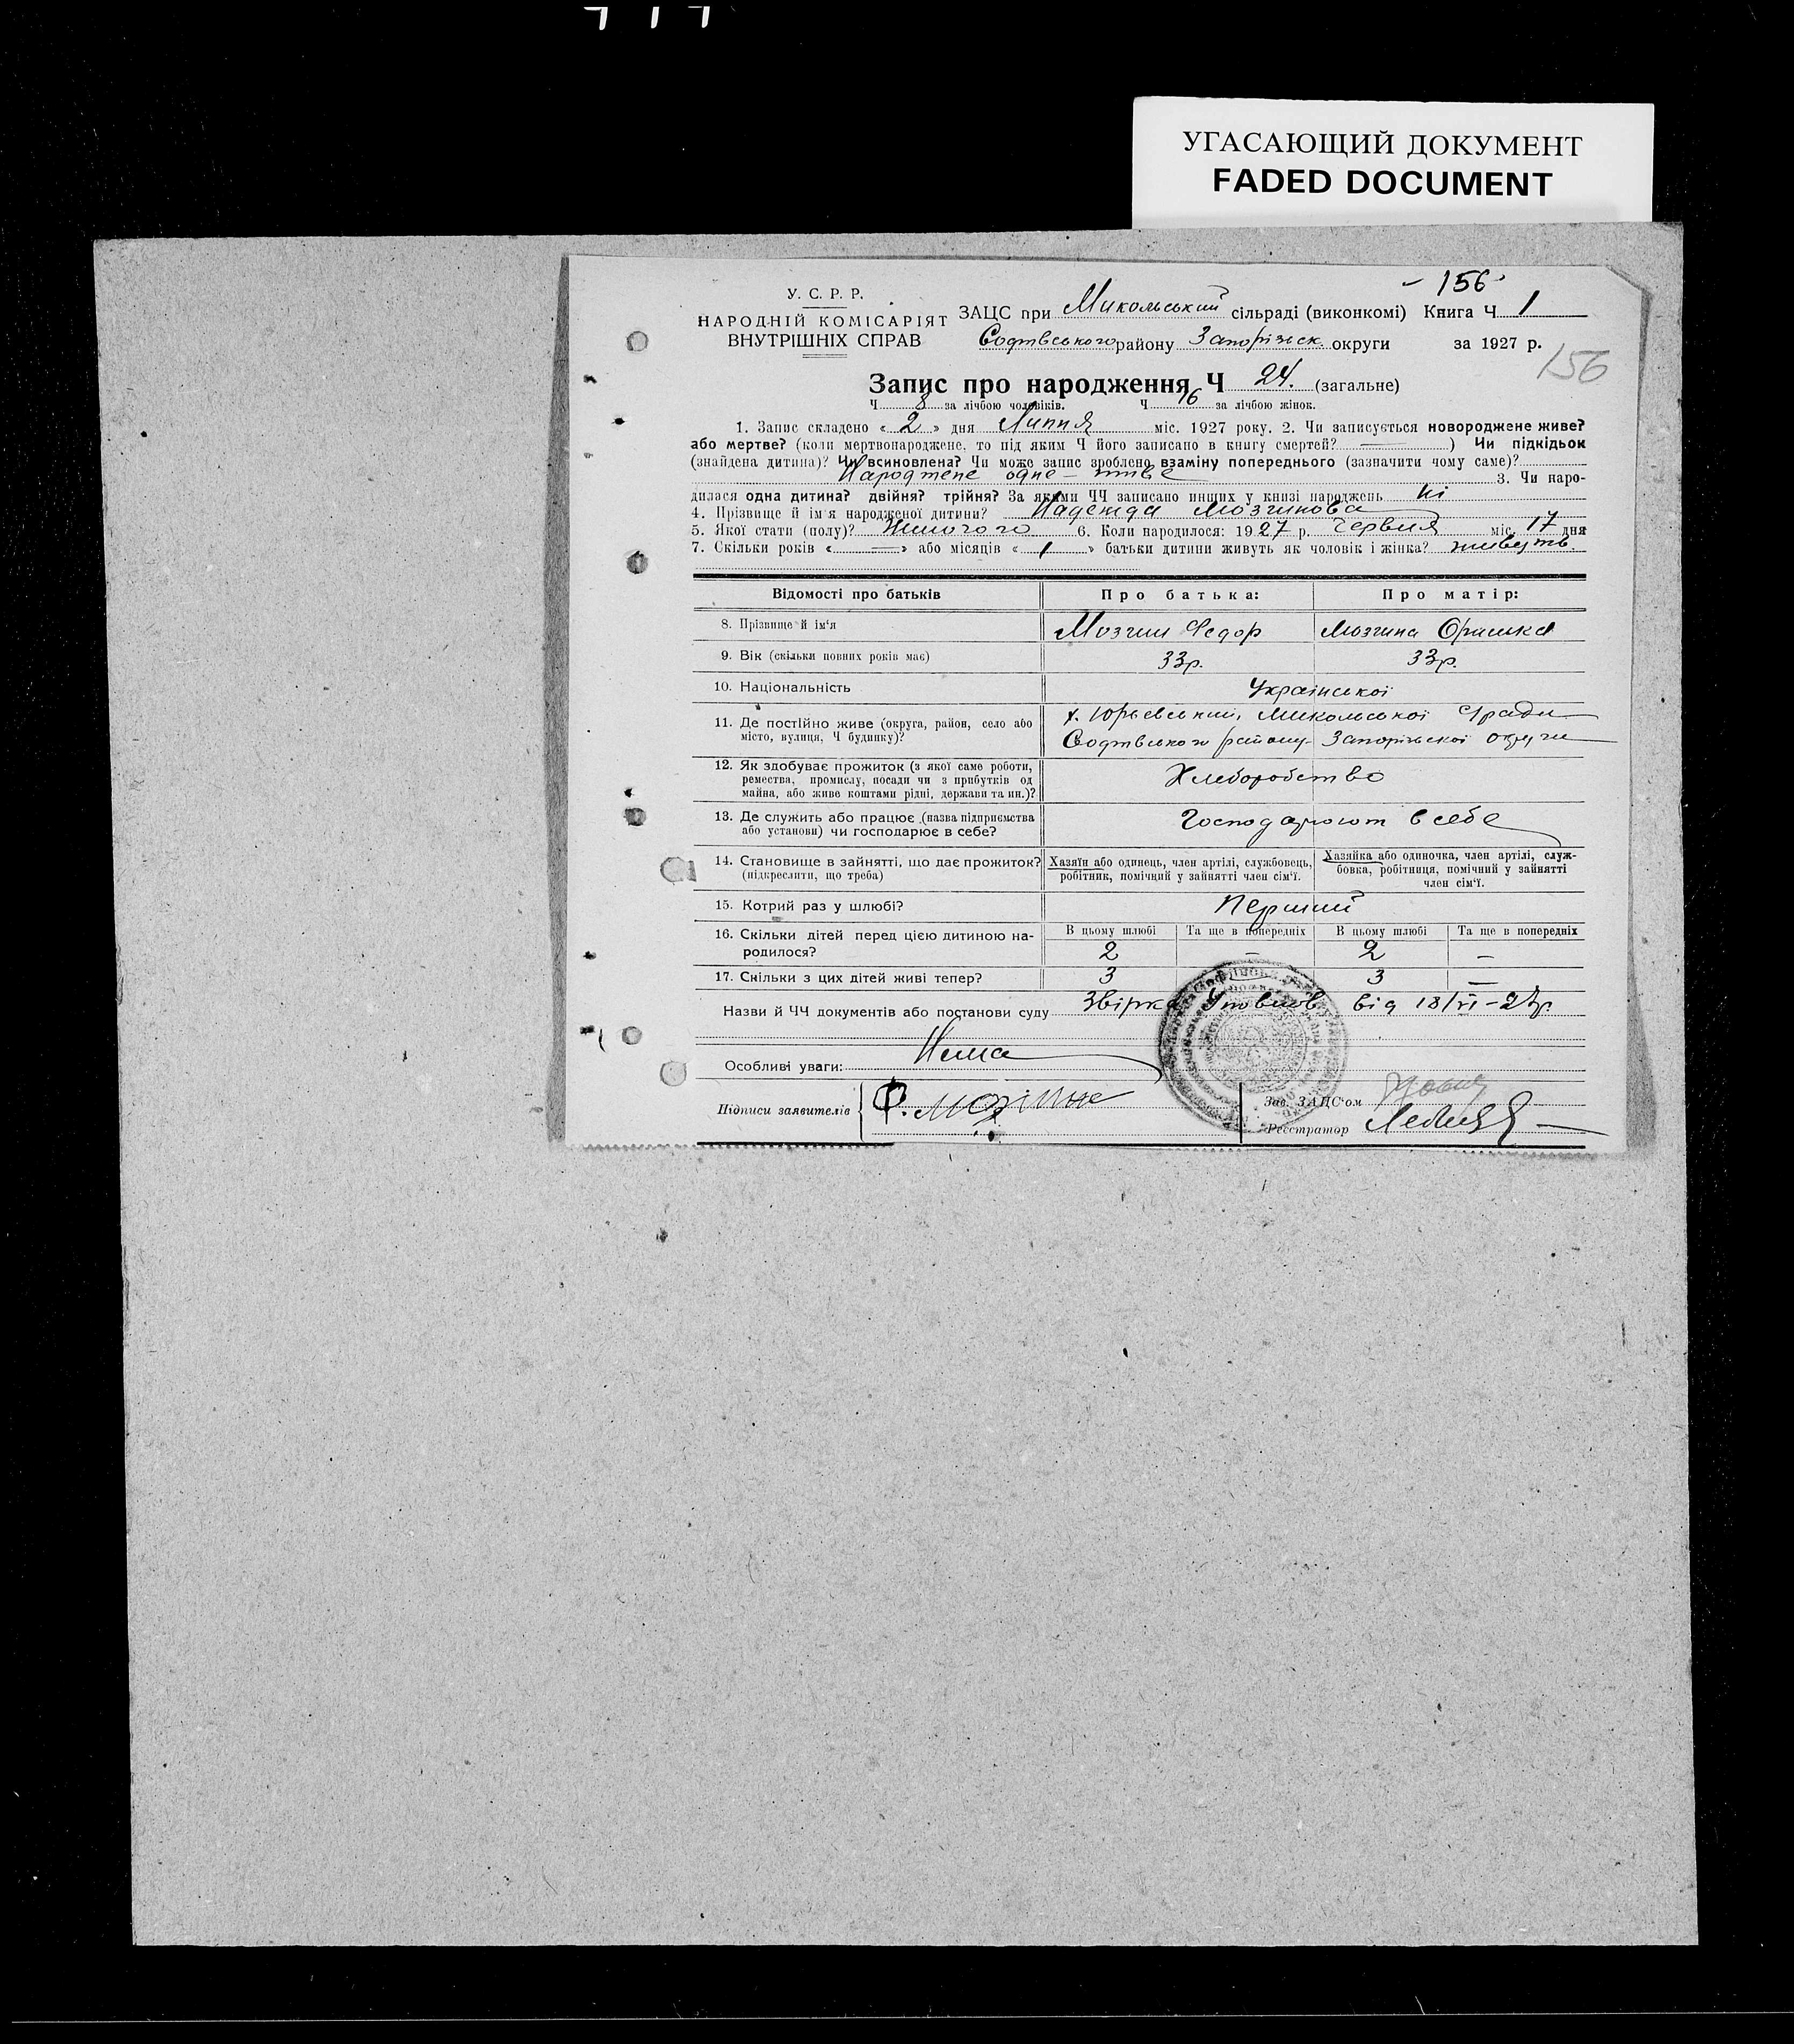 УГАСАЮЩИЙ ДОКУМЕНТ
FADED DOCUMENT
- 156 -
У. С. Р. Р.
НАРОДНІЙ КОМІСАРІЯТ
ВНУТРІШНІХ СПРАВ
ЗАЦС при Микольський сільраді (виконкомі) Книга Ч 1
Софтвського району Запоріжск. округи за 1927 р.
156
Запис про народження Ч 24. (загальне)
Ч 8 за лічбою чоловіків. Ч 16 за лічбою жінок.
1. Запис складено « 2 » дня Липня міс. 1927 року. 2. Чи записується новороджене живе?
або мертве? (коли мертвонароджене, то під яким Ч його записано в книгу смертей? ——) Чи підкідьок
(знайдена дитина)? Чи всиновлена? Чи може запис зроблено взаміну попереднього (зазначити чому саме)?
Народжене одне - живе 3. Чи наро-
дилася одна дитина? двійня? трійня? За якими ЧЧ записано инших у книзі народжень ні
4. Прізвище й ім'я народженої дитини? Надежда Мозгинова
5. Якої стати (полу)? Жиночого 6. Коли народилося: 1927 р. Червня міс. 17 дня
7. Скільки років « —— » або місяців « 1 » батьки дитини живуть як чоловік і жінка? живуть.
Відомості про батьків Про батька: Про матір:
8. Прізвище й ім'я Мозгин Федор Мозгина Оришка
9. Вік (скільки повних років має) 33р. 33р.
10. Національність Української
11. Де постійно живе (округа, район, село або місто, вулиця, Ч будинку)? х. Юрьевський, Микольської с/ради
Софтвського району Запоріжської округи
12. Як здобуває прожиток (з якої саме роботи,
ремества, промислу, посади чи з прибутків од
майна, або живе коштами рідні, держави та ин.)? Хлеборобство
13. Де служить або працює (назва підприємства
або установи) чи господарює в себе? Господарюют в себе
14. Становище в зайнятті, що дає прожиток?
(підкреслити, що треба)
Хазяїн або одинець, член артілі, службовець,
робітник, помічний у зайнятті член сім'ї.
Хазяйка або одиночка, член артілі, служ-
бовка, робітниця, помічний у зайнятті
член сім'ї.
15. Котрий раз у шлюбі? Перший
16. Скільки дітей перед цією дитиною на-
родилося?
В цьому шлюбі Та ще в попередніх В цьому шлюбі Та ще в попередніх
2 – 2 –
17. Скільки з цих дітей живі тепер? 3 3 —
Назви й ЧЧ документів або постанови суду Звірка від 18/VI-27р.
Особливі уваги: Нема
Підписи заявителів Ф. Мозгин
Зав. ЗАЦС'ом
Реєстратор